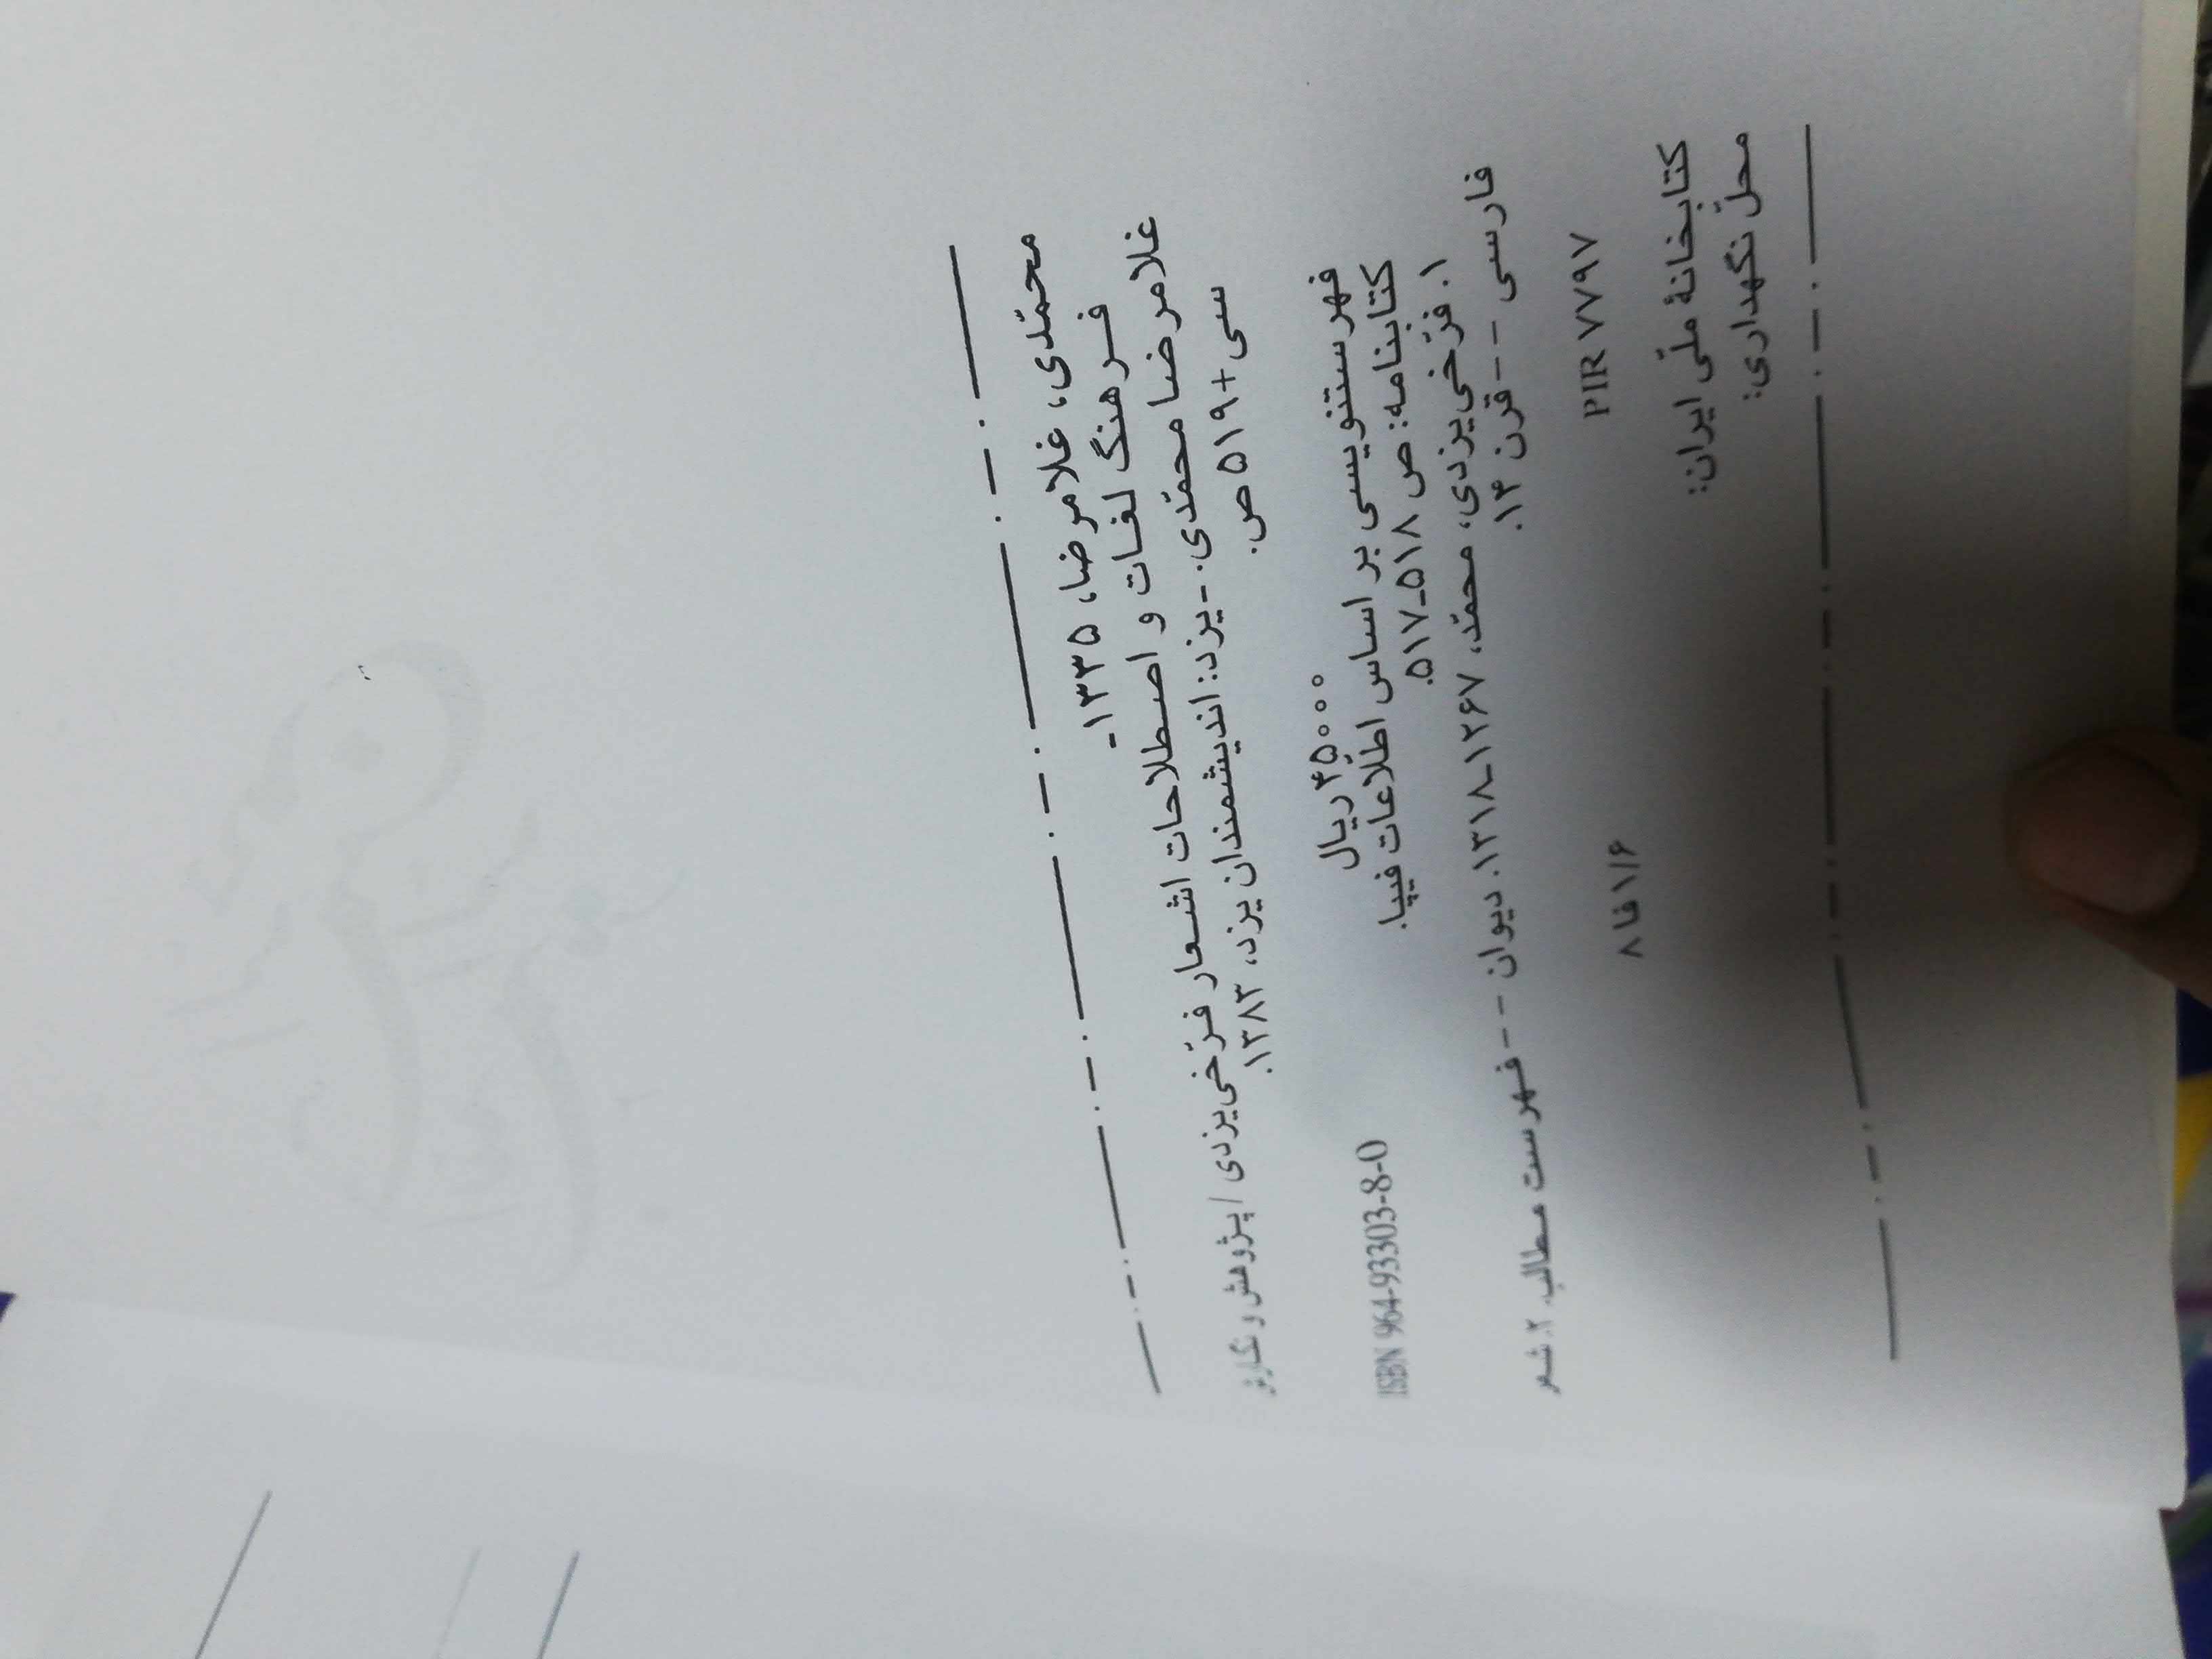 محمّدی، غلامرضا، ۱۳۳۵-
فرهنگ لغات و اصطلاحات اشعار فرّخی‌یزدی / پژوهش و نگارش
غلامرضا محمّدی. - یزد: اندیشمندان یزد، ۱۳۸۳.
سی+۵۱۹ص.
ISBN 964-93303-8-0
۴۵۰۰۰ ریال
فهرستنویسی بر اساس اطّلاعات فیپا.
کتابنامه: ص ۵۱۸-۵۱۷.
۱. فرّخی‌یزدی، محمّد، ۱۲۶۷-۱۳۱۸. دیوان - - فهرست مطالب. ۲. شعر
فارسی - - قرن ۱۴.
۸فا۱/۶
PIR ۷۷۹۷
کتابخانهٔ ملّی ایران:
محلّ نگهداری: